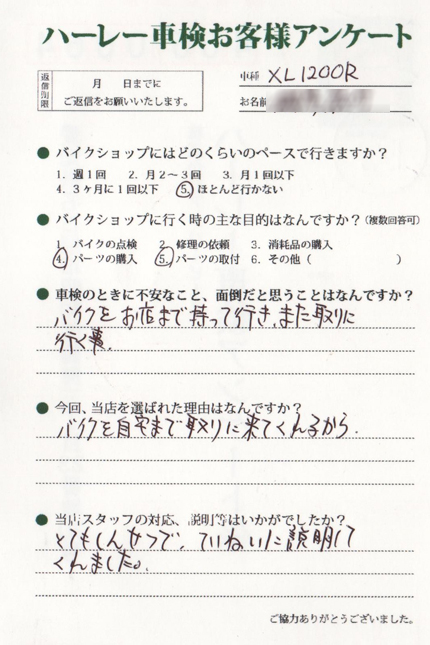 ハーレー車検お客様アンケート
返信期限
月　日までに
ご返信をお願いいたします。
車種 XL1200R
お名前
● バイクショップにはどのくらいのペースで行きますか？
1. 週1回　2. 月2〜3回　3. 月1回以下
4. 3ヶ月に1回以下　5. ほとんど行かない
● バイクショップに行く時の主な目的はなんですか？（複数回答可）
1. バイクの点検　2. 修理の依頼　3. 消耗品の購入
4. パーツの購入　5. パーツの取付　6. その他（　　　　）
● 車検のときに不安なこと、面倒だと思うことはなんですか？
バイクをお店まで持って行き、また取りに
行く事。
● 今回、当店を選ばれた理由はなんですか？
バイクを自宅まで取りに来てくれるから.
● 当店スタッフの対応、説明等はいかがでしたか？
とてもしんせつで、ていねいに説明して
くれました。
ご協力ありがとうございました。